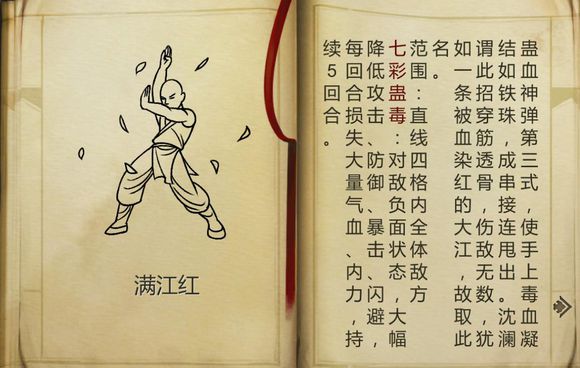 满江红
蛊血神弹第三式，使手上毒血凝
结如铁珠，成串接连甩出。沈澜
谓此招穿筋透骨，伤敌无数，犹
如一条被血染红的大江，故取此
名。
范围：直线四格内全体敌方
七彩蛊毒：对敌负面状态，大幅
降低攻击、防御、暴击、闪避，
每回合损失大量气血、内力，持
续5回合。